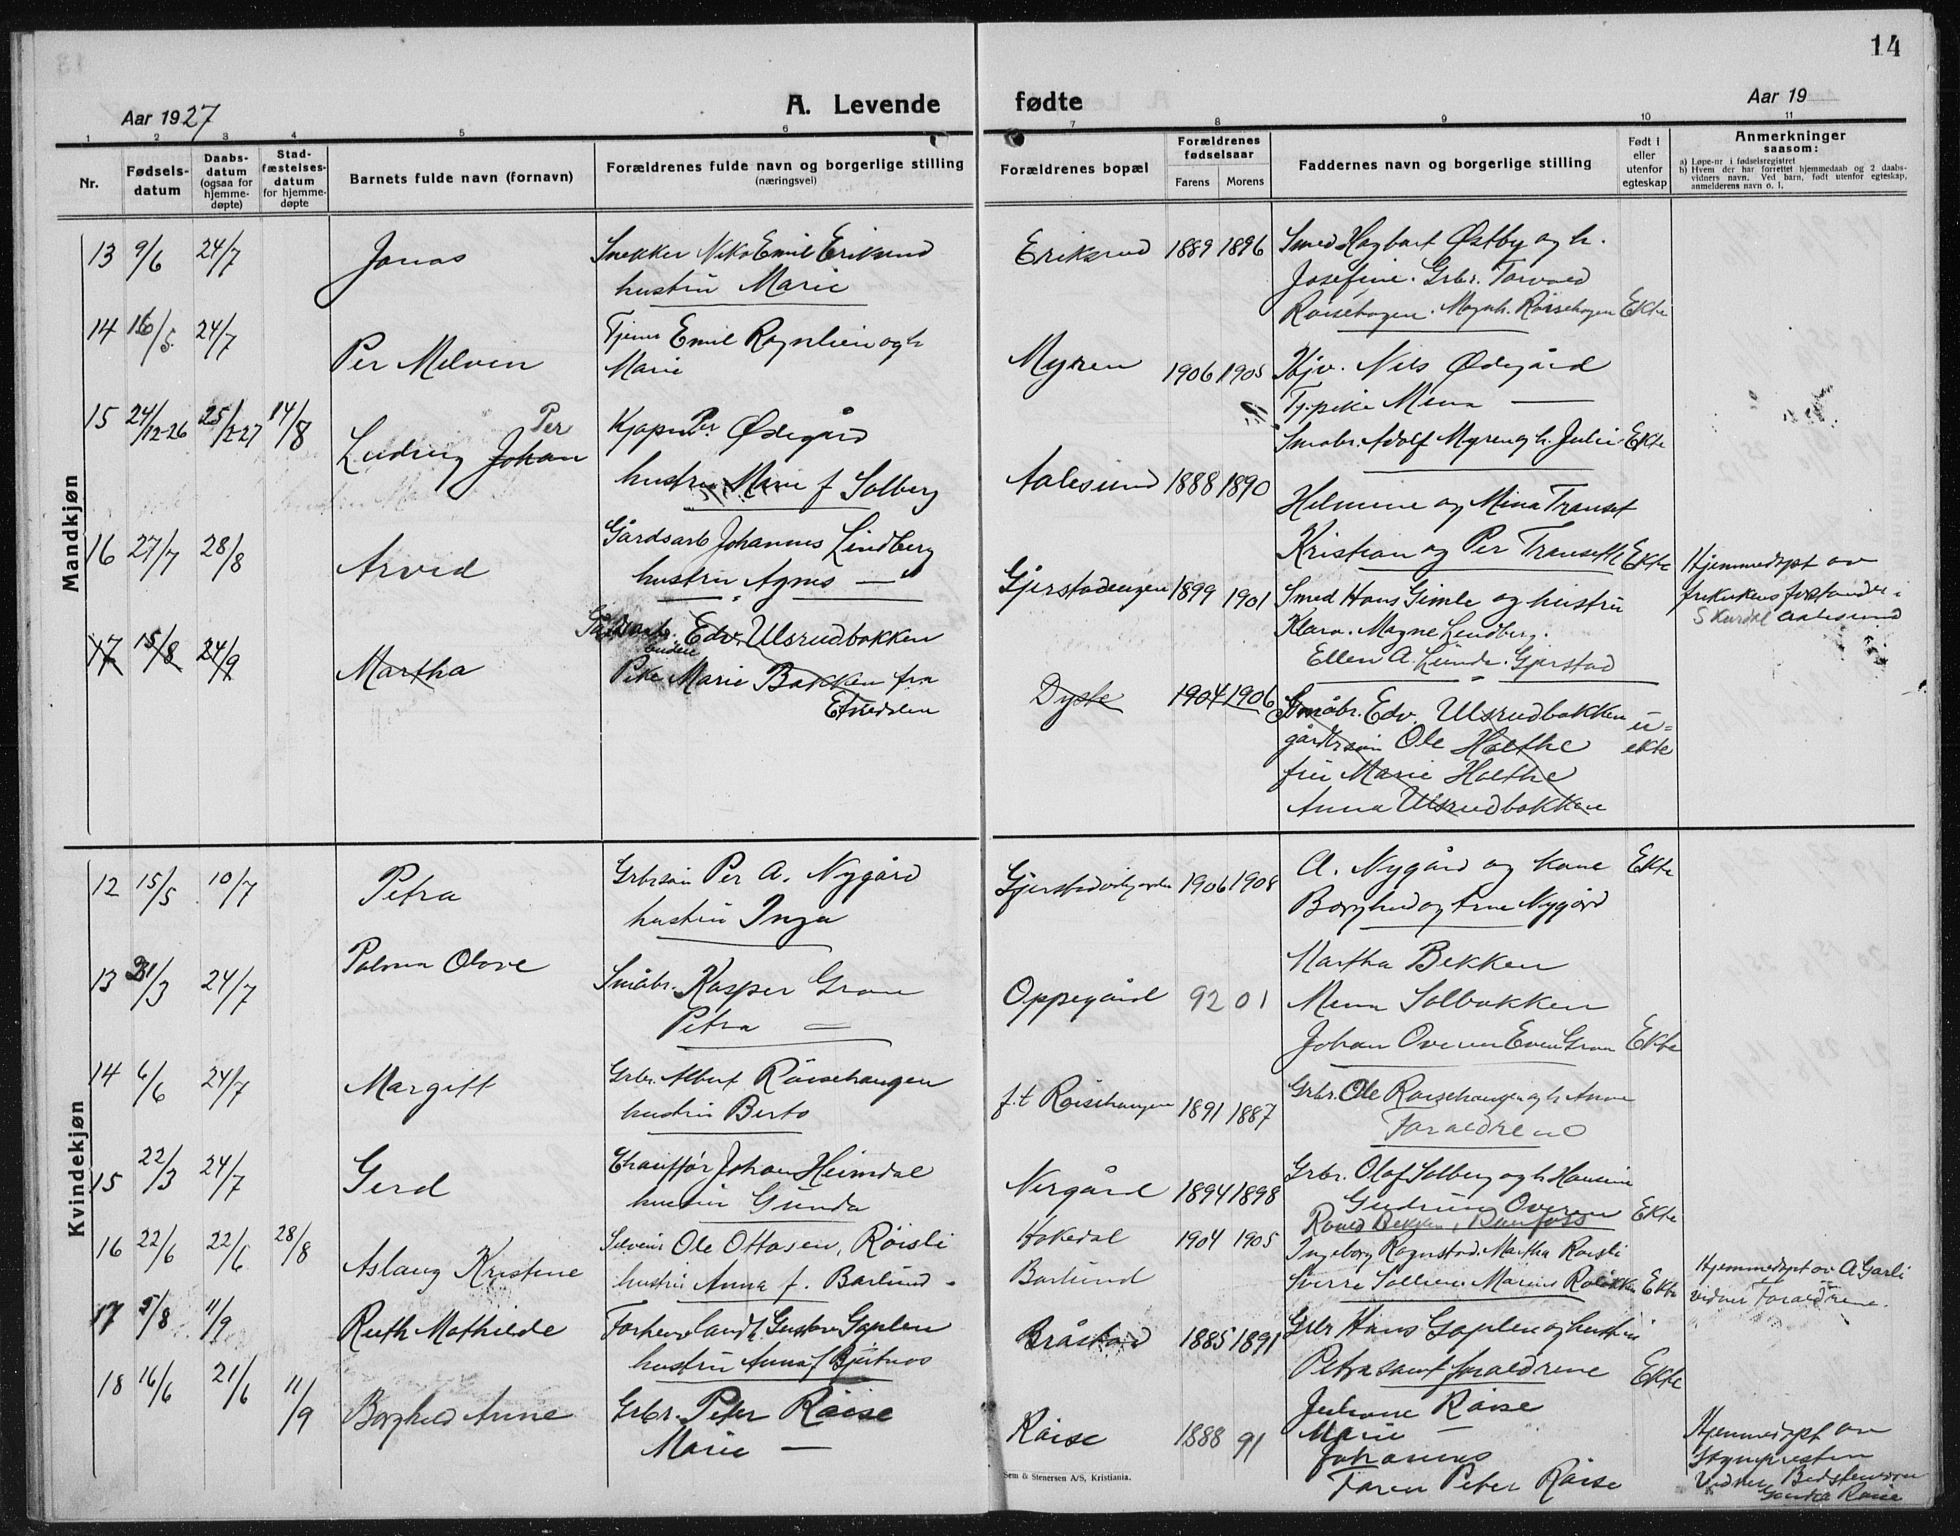 14
Aar 1927
A. Levende fødte
Aar 19
1 2 3 4 5 6 7 8 9 10 11
Nr.
Fødsels-
datum
Daabs-
datum
(ogsaa for
hjemme-
døpte)
Stad-
fæstelses-
datum
for hjemme-
døpte
Barnets fulde navn (fornavn)
Forældrenes fulde navn og borgerlige stilling
(næringsvei)
Forældrenes bopæl
Forældrenes
fødselsaar
Farens Morens
Faddernes navn og borgerlige stilling
Født i
eller
utenfor
egteskap
Anmerkninger
saasom:
a) Løpe-nr i fødselsregistret
b) Hvem der har forrettet hjemmedaab og 2 daabs-
vidners navn. Ved barn, født utenfor egteskap,
anmelderens navn o. l.
Mandkjøn
13 9/6 24/7 Jonas
Snekker Emil Eriksrud
hustru Marie
Eriksrud 1889 1896
Smed Hagbart Østby og h.
Josefine. Grbr. Torvald
Røisehagen. Magnh. Røisehagen Ekte
14 16/5 24/7 Per Melvin
Emil Rognlien og h
Marie
Myren 1906 1905
Nils Ødegård
Tj.pike Mena —
Småbr. Adolf Myren og h. Julie Ekte
15 24/12-26 25/12-27 14/8 Ludvig Johan Per
Kjøpm Per Ødegård
hustru Marie f Solberg
Aalesund 1888 1890
Helmine og Mina Transet
Kristian og Per Transeth Ekte
Hjemmedøpt av
Skurdal Aalesund
16 27/7 28/8 Arvid
Gårdsarb Johannes Lindberg
hustru Agnes — "
Gjerstadengen 1899 1901
Smed Hans Gimle og hustru
Klara. Magne Lindberg.
Ellen A. Lunde. Gjerstad
17 15/8 24/9 Martha
Gårdsarb. Edv. Ulsrudbakken
Pike Marie Bakken fra
Etnedalen
Dyste 1904 1906
Småbr. Edv. Ulsrudbakken
Ole Holthe
fru Marie Holthe
Anna Ulsrudbakken
u-
ekte
Kvindekjøn
12 15/5 10/7 Petra
Grbrsøn Per A. Nygård
hustru Inga
1906 1908
A. Nygård og kone Ekte
Borghild og Arne Nygård
13 31/3 24/7 Palma Olove
Småbr. Kasper Gran
Petra —
Oppegård 92 01
Martha Bekken
Mena Solbakken
Johan Overen Even Gran Ekte
14 6/6 24/7 Margitt
Grbr. Albert Røisehaugen
hustru Berto
f.t Røisehaugen 1891 1887
Grbr. Ole Røisehaugen og h Anne
Foraeldrene
15 22/3 24/7 Gerd
Chauffør Johan Heimdal
hustru Gunda
Nergård 1894 1898
Grbr. Olaf Solberg og h Hansine
Gudrun Overen Ekte
16 22/6 22/6 28/8 Aslaug Kristine
Ole Ottosen, Røisli
hustru Anna f. Barlund.
Hokedal 1904 1905
Barlund
Ingeborg Rognstad. Martha Røisli
Ekte
Hjemmedøpt av A Garli
vidner Foraeldrene.
17 5/8 11/9 Ruth Mathilde
Gustav Goplen
hustru Anna f
Bråstad 1885 1891
Grbr Hans Goplen og hustru
Petra samt foraeldrene Ekte
18 16/6 21/6 11/9 Borghild Anne
Grbr. Peter Røise
Marie —
Røise 1888 91
Juliane Røise
Marie —
Johannes
Faren Peter Røise
Hjemmedøpt av
Vidner
Røise
Sem & Stenersen A/S, Kristiania.